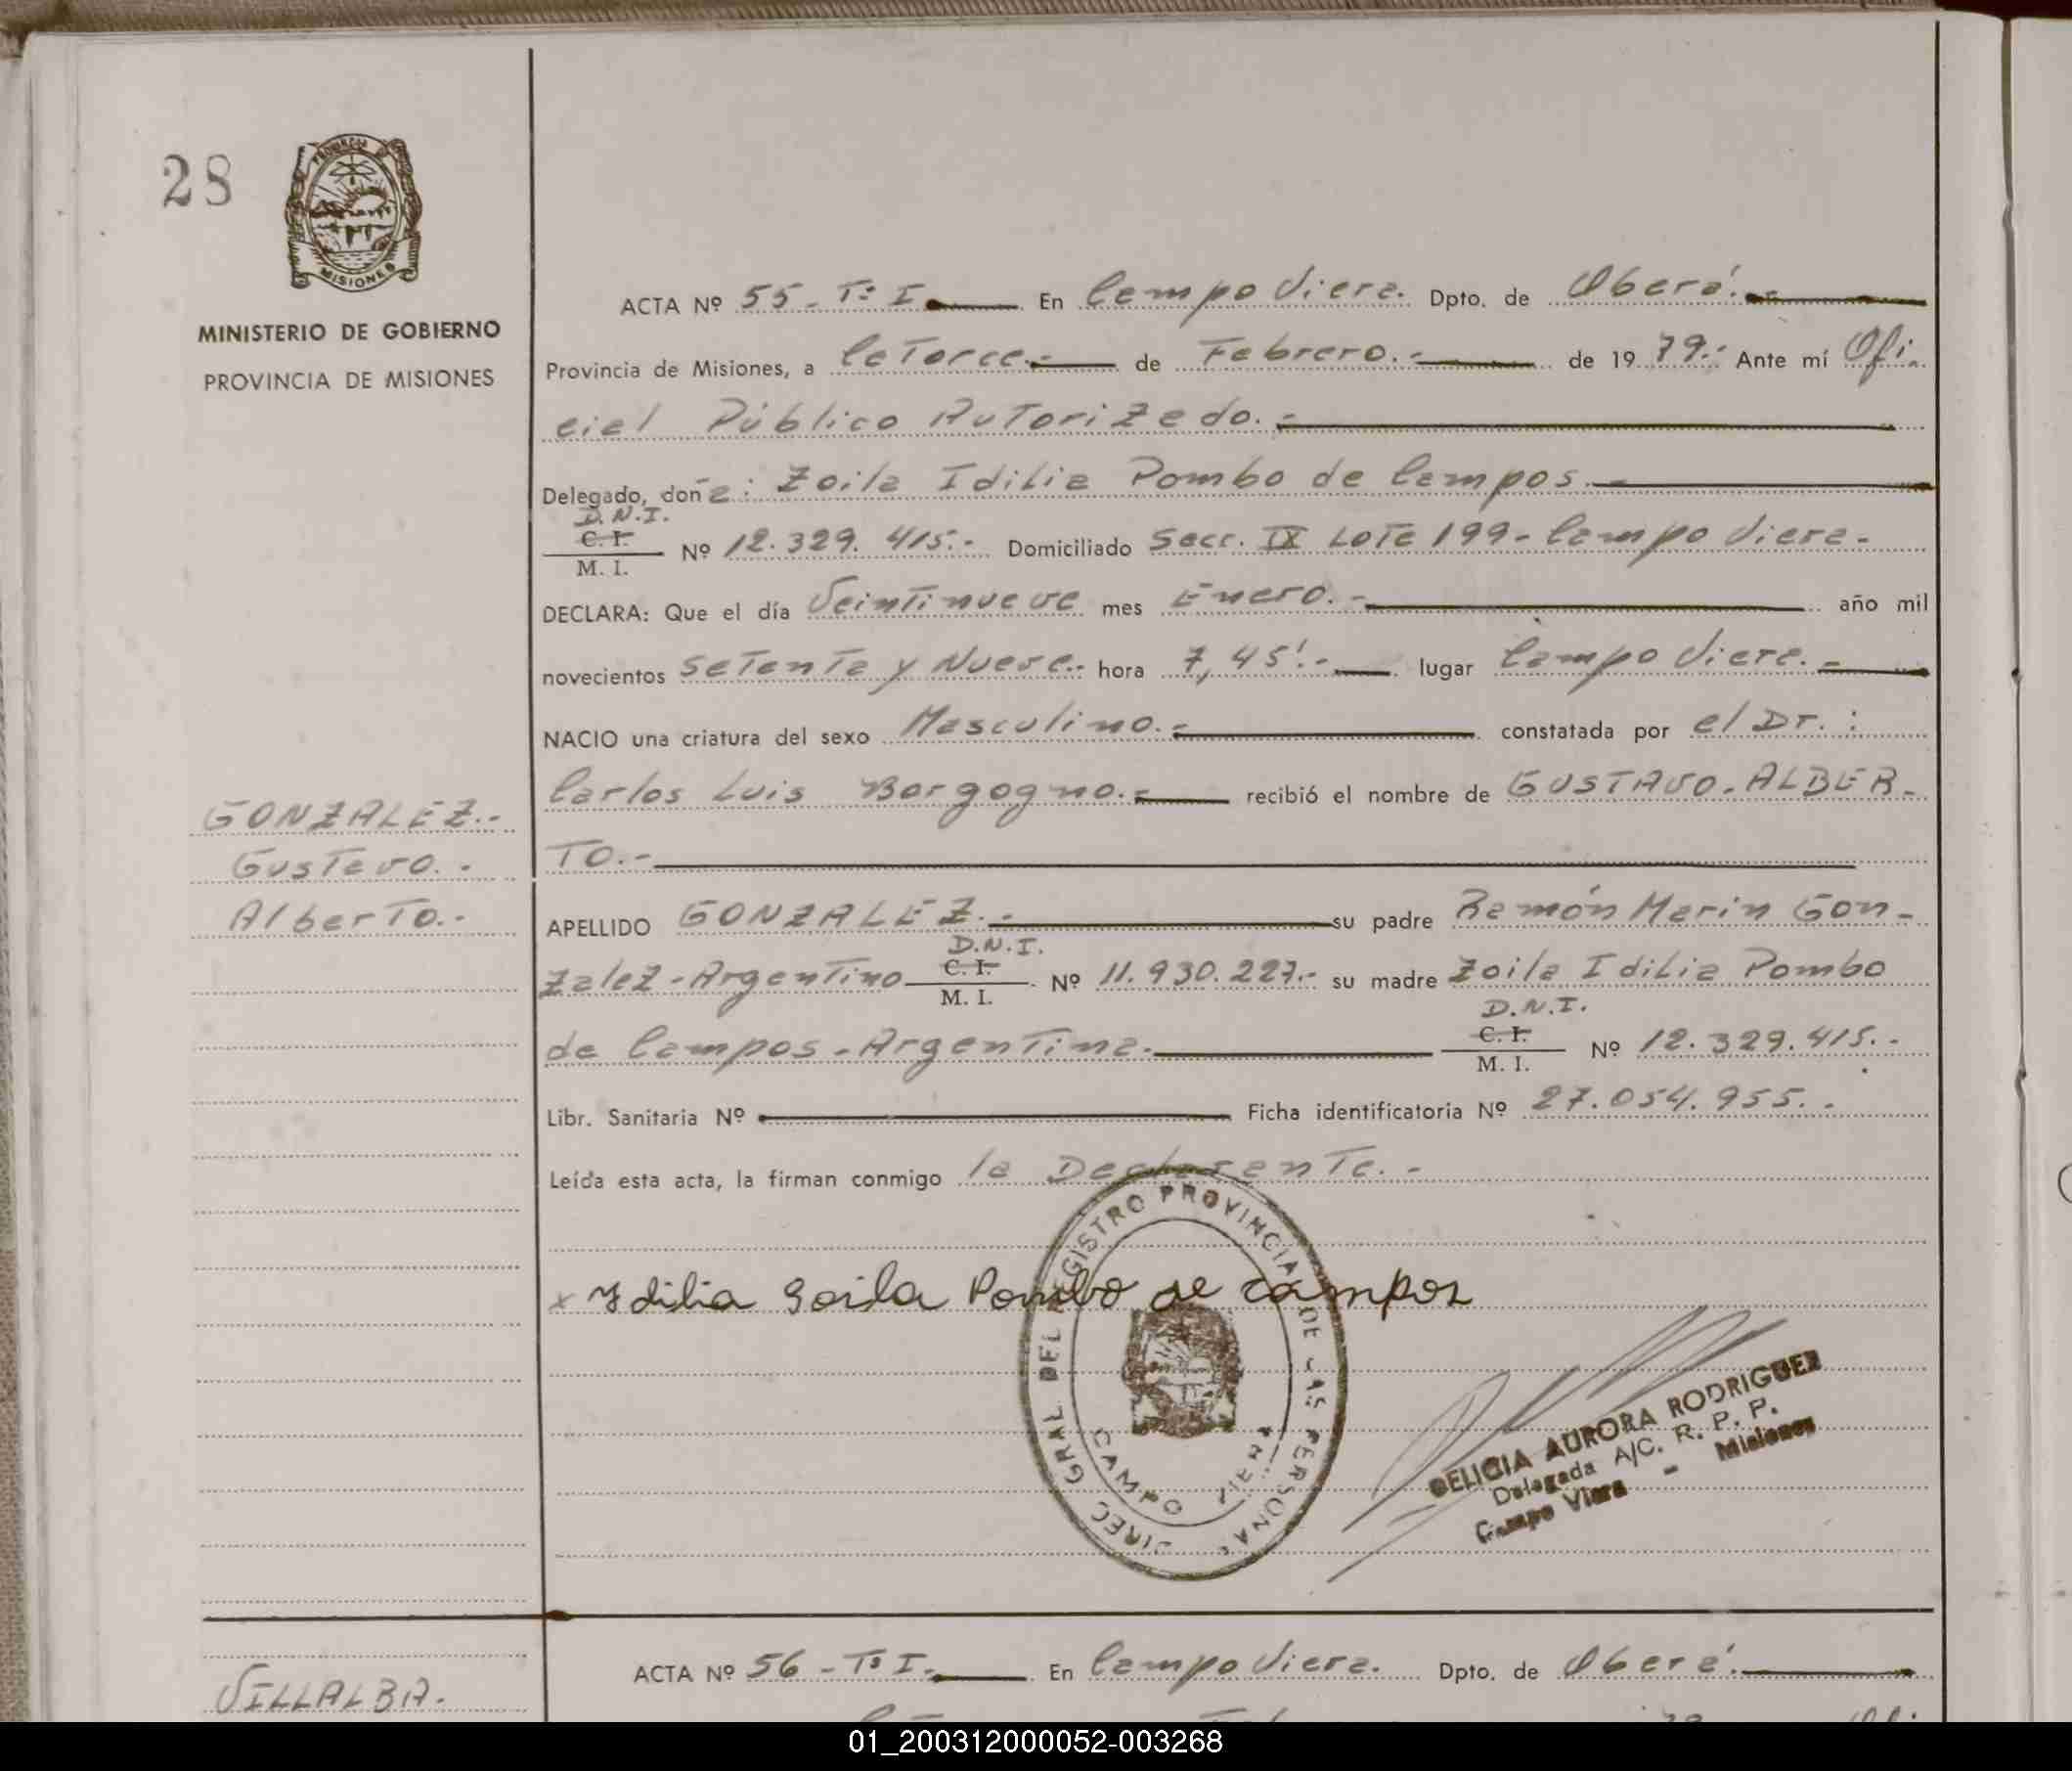 28
PROVINCIA DE
MISIONES
MINISTERIO DE GOBIERNO
PROVINCIA DE MISIONES
ACTA Nº 55 - Tº I. En Campo Viera. Dpto. de Oberá.-
Provincia de Misiones, a Catorce.- de Febrero.- de 1979.- Ante mí Ofi-
cial Público Autorizado.-
Delegado, doña: Zoila Idilia Pombo de Campos.-
D.N.I.
C. I.
M. I.
Nº 12.329.415.- Domiciliado Secc. IX Lote 199- Campo Viera.-
DECLARA: Que el día Veintinueve mes Enero.- año mil
novecientos Setenta y Nueve.- hora 7,45'.- lugar Campo Viera.-
NACIO una criatura del sexo Masculino.- constatada por el Dr.:
Carlos Luis Borgogno.- recibió el nombre de GUSTAVO-ALBER-
TO.-
GONZALEZ.-
Gustavo.-
Alberto.-
APELLIDO GONZALEZ.- su padre Ramón Marin Gon-
D.N.I.
zalez-Argentino C. I. Nº 11.930.227.- su madre Zoila Idilia Pombo
M. I.
D.N.I.
de Campos-Argentina. C. I. Nº 12.329.415.-
M. I.
Libr. Sanitaria Nº Ficha identificatoria Nº 27.054.955.-
Leída esta acta, la firman conmigo la Declarante.-
x Idilia Soila Pombo de campos
DIREC GRAL DEL REGISTRO PROVINCIAL DE LAS PERSONAS
CAMPO VIERA
DELICIA AURORA RODRIGUEZ
Delegada A/C. R. P. P.
Campo Viera - Misiones
ACTA Nº 56 - Tº I.- En Campo Viera. Dpto. de Oberá.-
VILLALBA.
01_200312000052-003268